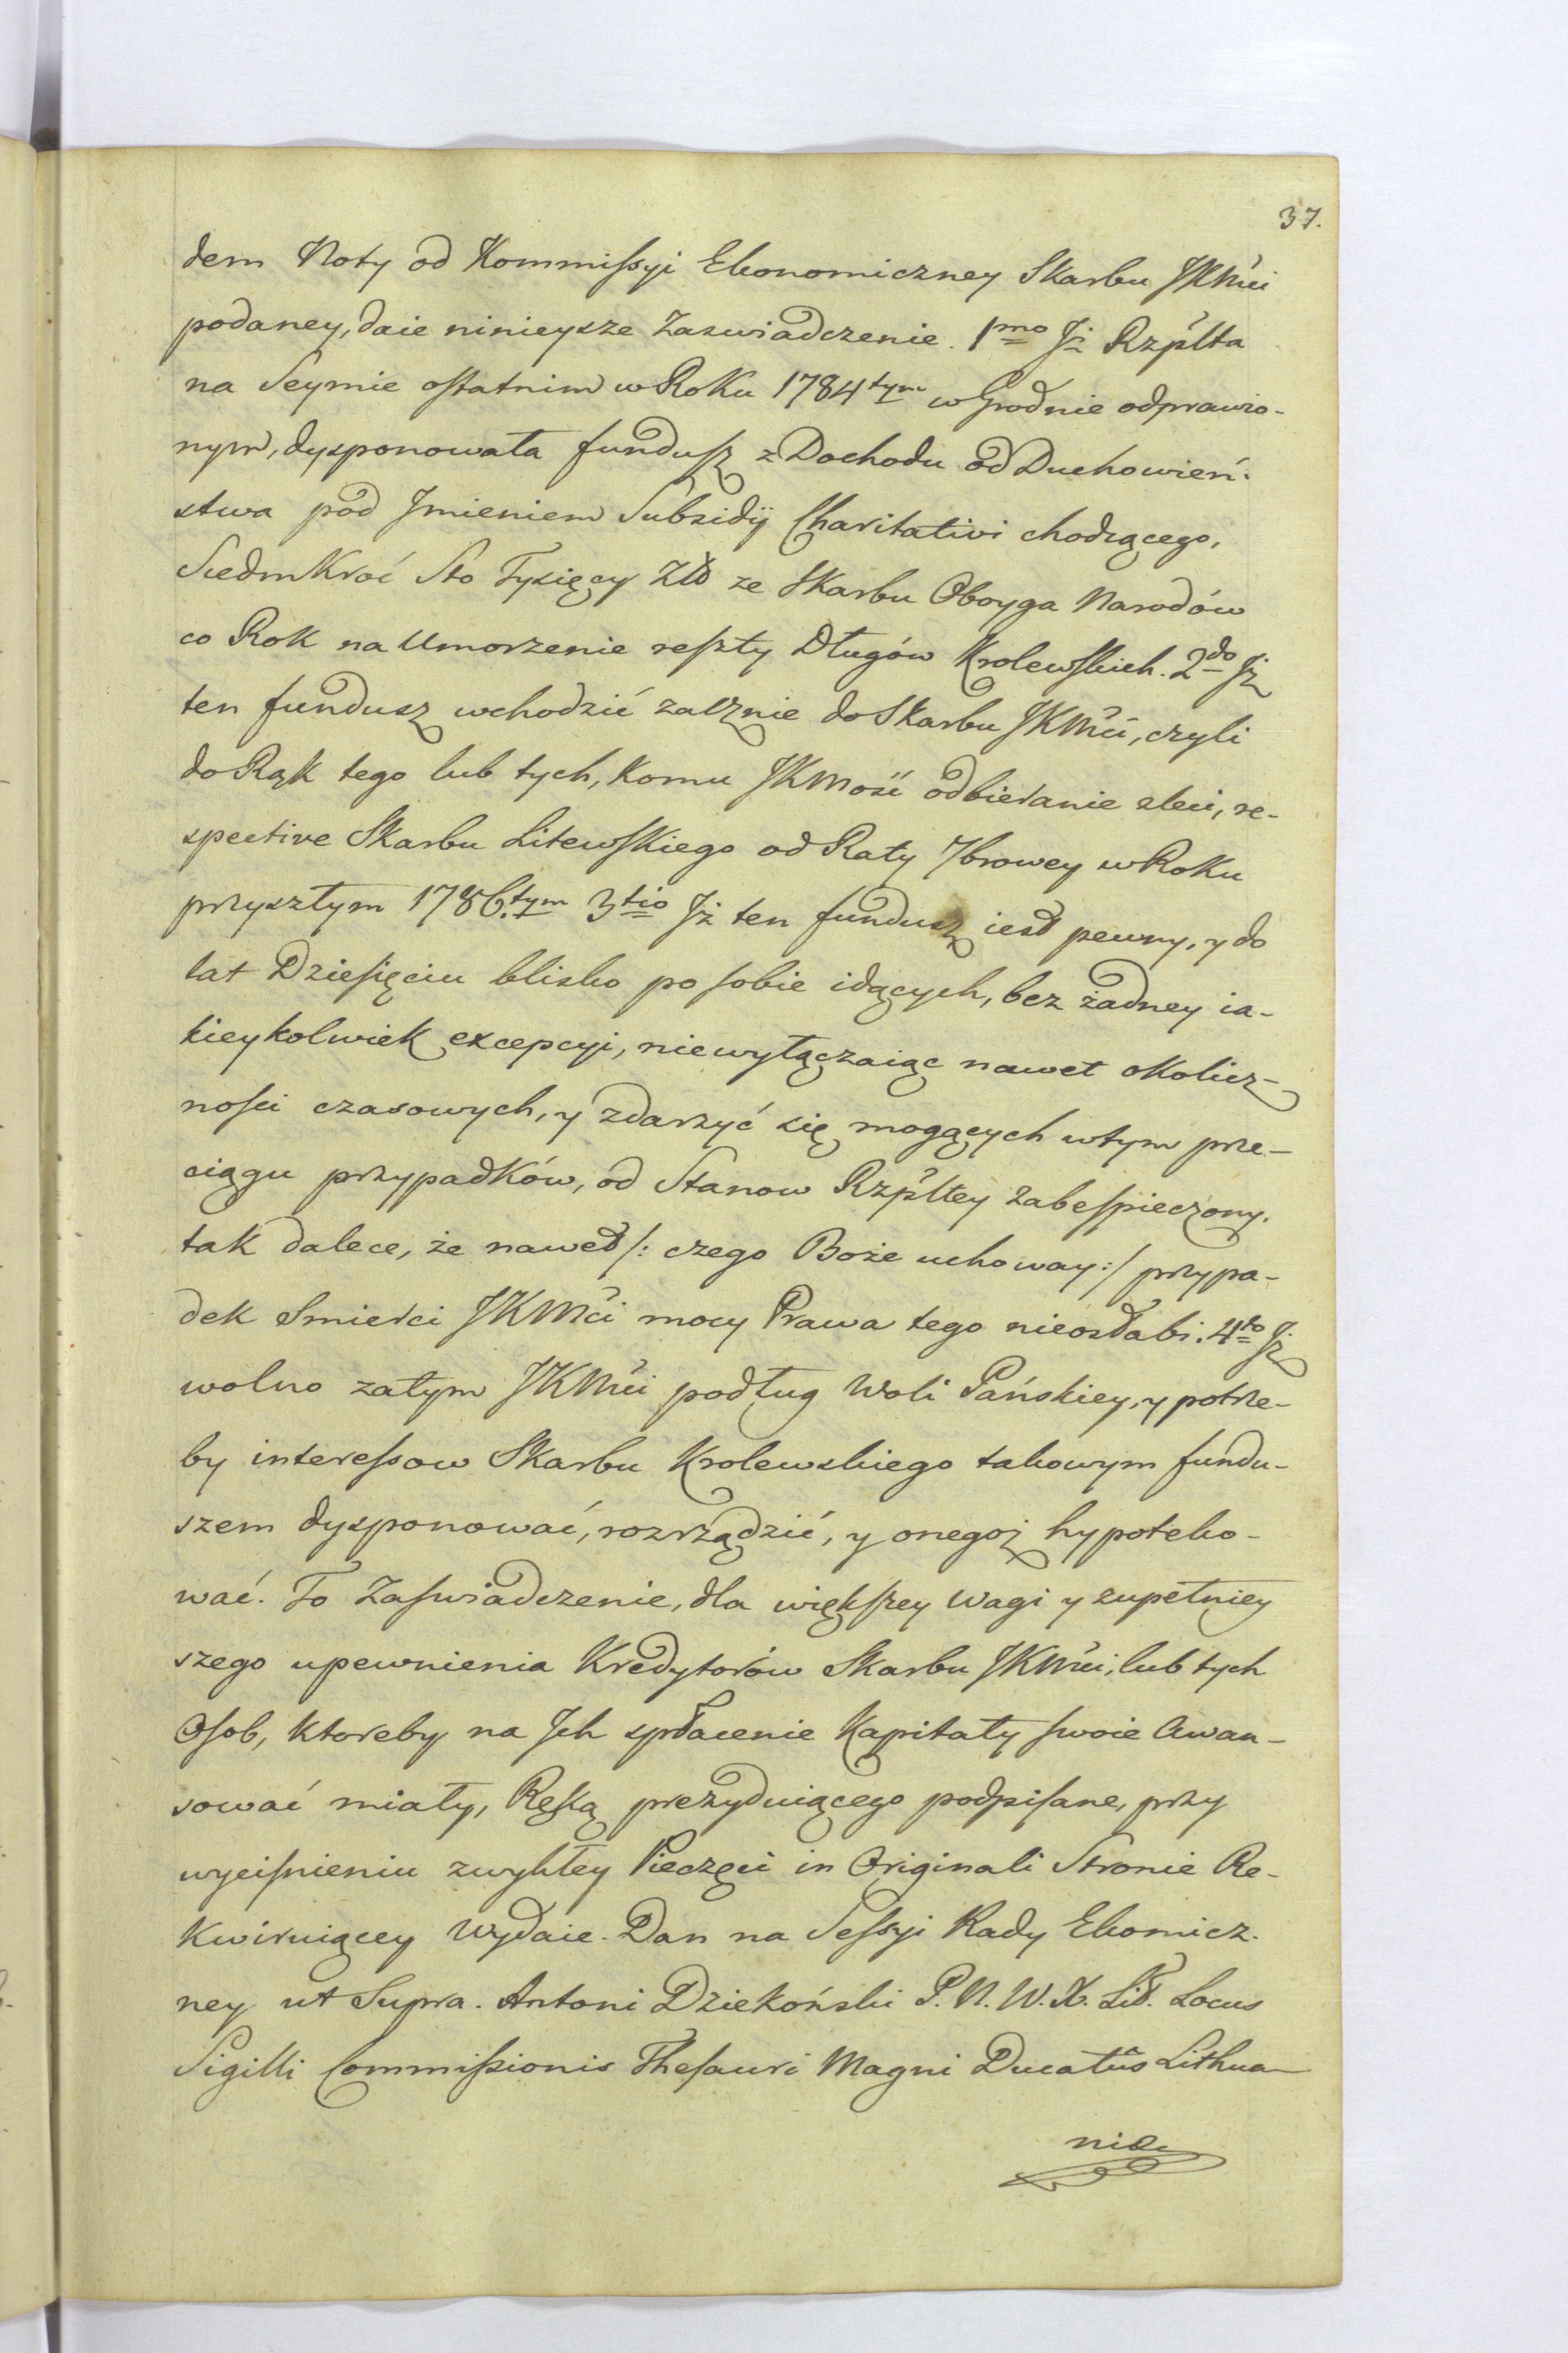 37.
dem Noty od Kommissyi Ekonomiczney Skarbu JKMci
podaney, daie ninieysze Zaswiadczenie. 1mo Jż Rzplta
na Seymie ostatnim w Roku 1784tym w Grodnie odprawio-
nym, dysponowała fundusz z Dochodu od Duchowień-
stwa pod Jmieniem Subsidij Charitativi chodzącego,
Siedmkroć Sto Tysięcy Zło ze Skarbu Oboyga Narodów
co Rok na Umorzenie reszty Długów Krolewskich. 2do Jż
ten fundusz wchodzić zacznie do Skarbu JKMci, czyli
do Rąk tego lub tych, komu JKMość odbieranie zleci, re-
spective Skarbu Litewskiego od Raty 7browey w Roku
przyszłym 1786.tym 3tio Jż ten fundusz iest pewny, y do
lat Dziesięciu blisko po sobie idących, bez żadney ia-
kieykolwiek excepcyi, niewyłączaiąc nawet okolicz-
nosci czasowych, y zdarzyć się mogących w tym prze-
ciągu przypadków, od Stanow Rzpltey zabespieczony.
tak dalece, że nawet /: czego Boże uchoway :/ przypa-
dek Smierci JKMci mocy Prawa tego nieosłabi. 4to Jż
wolno zatym JKMci podług Woli Pańskiey, y potrze-
by interessow Skarbu Krolewskiego takowym fundu-
szem dysponować, rozrządzić, y onegoż hypoteko-
wać. To Zaswiadczenie, dla większey Wagi y zupełniey
szego upewnienia Kredytorów Skarbu JKMci, lub tych
Osob, ktoreby na Jch spłacenie Kapitały swoie Awan-
sować miały, Ręką prezyduiącego podpisane, przy
wyciśnieniu zwykłey Pieczęci in Originali Stronie Re-
kwiruiącey wydaie. Dan na Sessyi Rady Ekomicz-
ney ut Supra. Antoni Dziekoński P. N. W. X. Lit. Locus
Sigilli Commissionis Thesauri Magni Ducatûs Lithua-
niæ